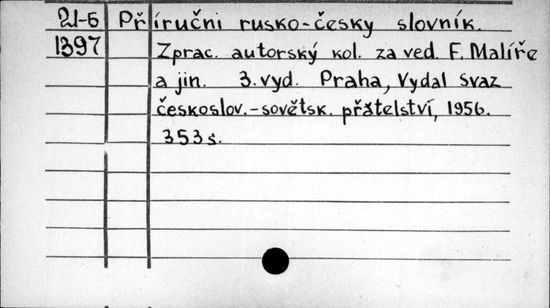 21-5 Příručni rusko-česky slovník.
1397 Zprac. autorský kol. za ved. F. Malíře
a jin. 3. vyd. Praha, Vydal Svaz
českoslov.-sovětsk. přátelství, 1956.
353 s.